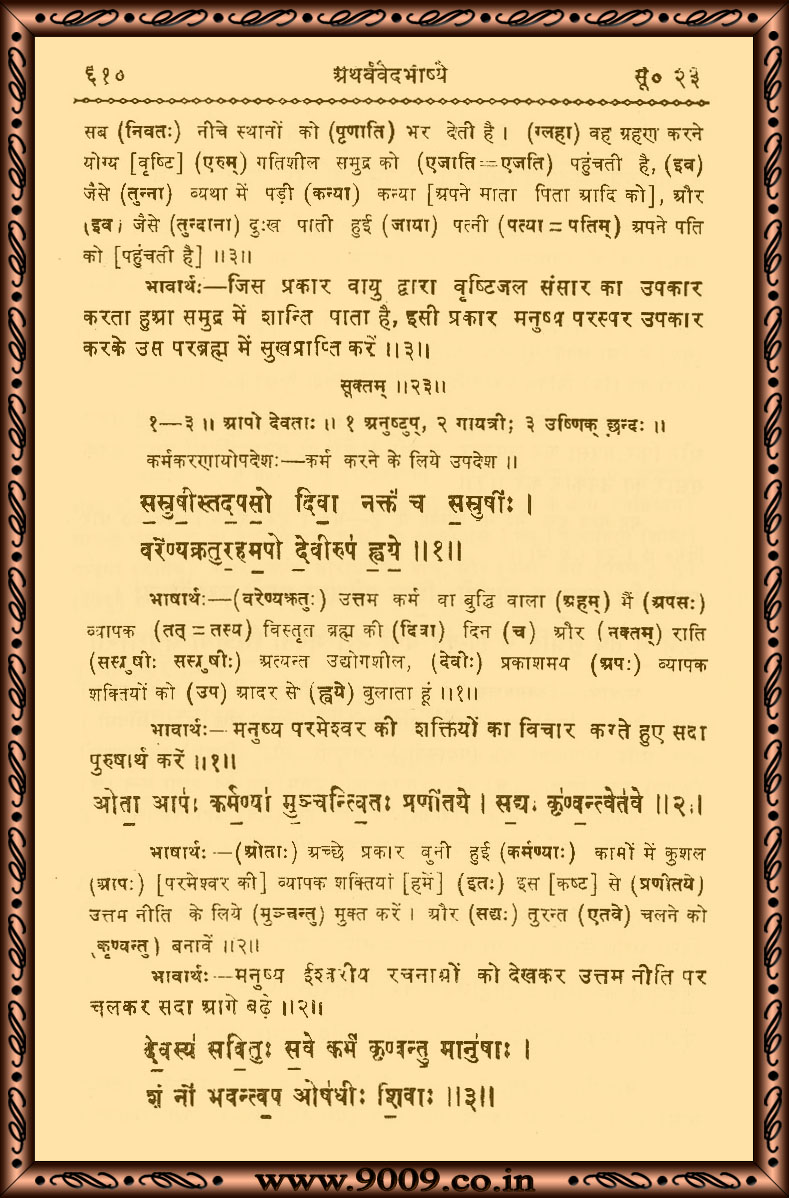 ६१० अथर्ववेदभाष्ये सू० २३
सब (निवतः) नीचे स्थानों को (पृणाति) भर देती है । (ग्लहा) वह ग्रहण करने
योग्य [वृष्टि] (एरुम्) गतिशील समुद्र को (एजाति=एजति) पहुंचती है, (इव)
जैसे (तुन्ना) व्यथा में पड़ी (कन्या) कन्या [अपने माता पिता आदि को], और
(इव) जैसे (तुन्दाना) दुःख पाती हुई (जाया) पत्नी (पत्या=पतिम्) अपने पति
को [पहुंचती है] ॥३॥
भावार्थः—जिस प्रकार वायु द्वारा वृष्टिजल संसार का उपकार
करता हुआ समुद्र में शान्ति पाता है, इसी प्रकार मनुष्य परस्पर उपकार
करके उस परब्रह्म में सुखप्राप्ति करें ॥३॥
सूक्तम् ॥२३॥
१—३ ॥ आपो देवताः ॥ १ अनुष्टुप्, २ गायत्री; ३ उष्णिक् छन्दः ॥
कर्मकरणायोपदेशः—कर्म करने के लिये उपदेश ॥
स॒स्रुषी॒स्तद॒पसो॒ दिवा॒ नक्तं॑ च स॒स्रुषीः॑ ।
वरे॑ण्यक्रतुर॒हम॒पो दे॒वीरुप॑ ह्व॒ये॒ ॥१॥
भाषार्थः—(वरेण्यक्रतुः) उत्तम कर्म वा बुद्धि वाला (अहम्) मैं (अपसः)
व्यापक (तत्=तस्य) विस्तृत ब्रह्म की (दिवा) दिन (च) और (नक्तम्) राति
(सस्रुषीः सस्रुषीः) अत्यन्त उद्योगशील, (देवीः) प्रकाशमय (अपः) व्यापक
शक्तियों को (उप) आदर से (ह्वये) बुलाता हूं ॥१॥
भावार्थः—मनुष्य परमेश्वर की शक्तियों का विचार करते हुए सदा
पुरुषार्थ करें ॥१॥
ओता॒ आपः॑ कर्म॒ण्या॑ मु॒ञ्चन्त्वि॒तः प्रणी॑तये । स॒द्यः कृ॑ण्व॒न्त्वेत॑वे ॥२॥
भाषार्थः—(ओताः) अच्छे प्रकार बुनी हुई (कर्मण्याः) कामों में कुशल
(आपः) [परमेश्वर की] व्यापक शक्तियां [हमें] (इतः) इस [कष्ट] से (प्रणीतये)
उत्तम नीति के लिये (मुञ्चन्तु) मुक्त करें । और (सद्यः) तुरन्त (एतवे) चलने को
(कृण्वन्तु) बनावें ॥२॥
भावार्थः—मनुष्य ईश्वरीय रचनाओं को देखकर उत्तम नीति पर
चलकर सदा आगे बढ़े ॥२॥
दे॒वस्य॑ सवि॒तुः स॒वे कर्म॑ कृण्वन्तु॒ मानु॑षाः ।
शं नो॑ भवन्त्व॒प ओष॑धीः शि॒वाः ॥३॥
www.9009.co.in